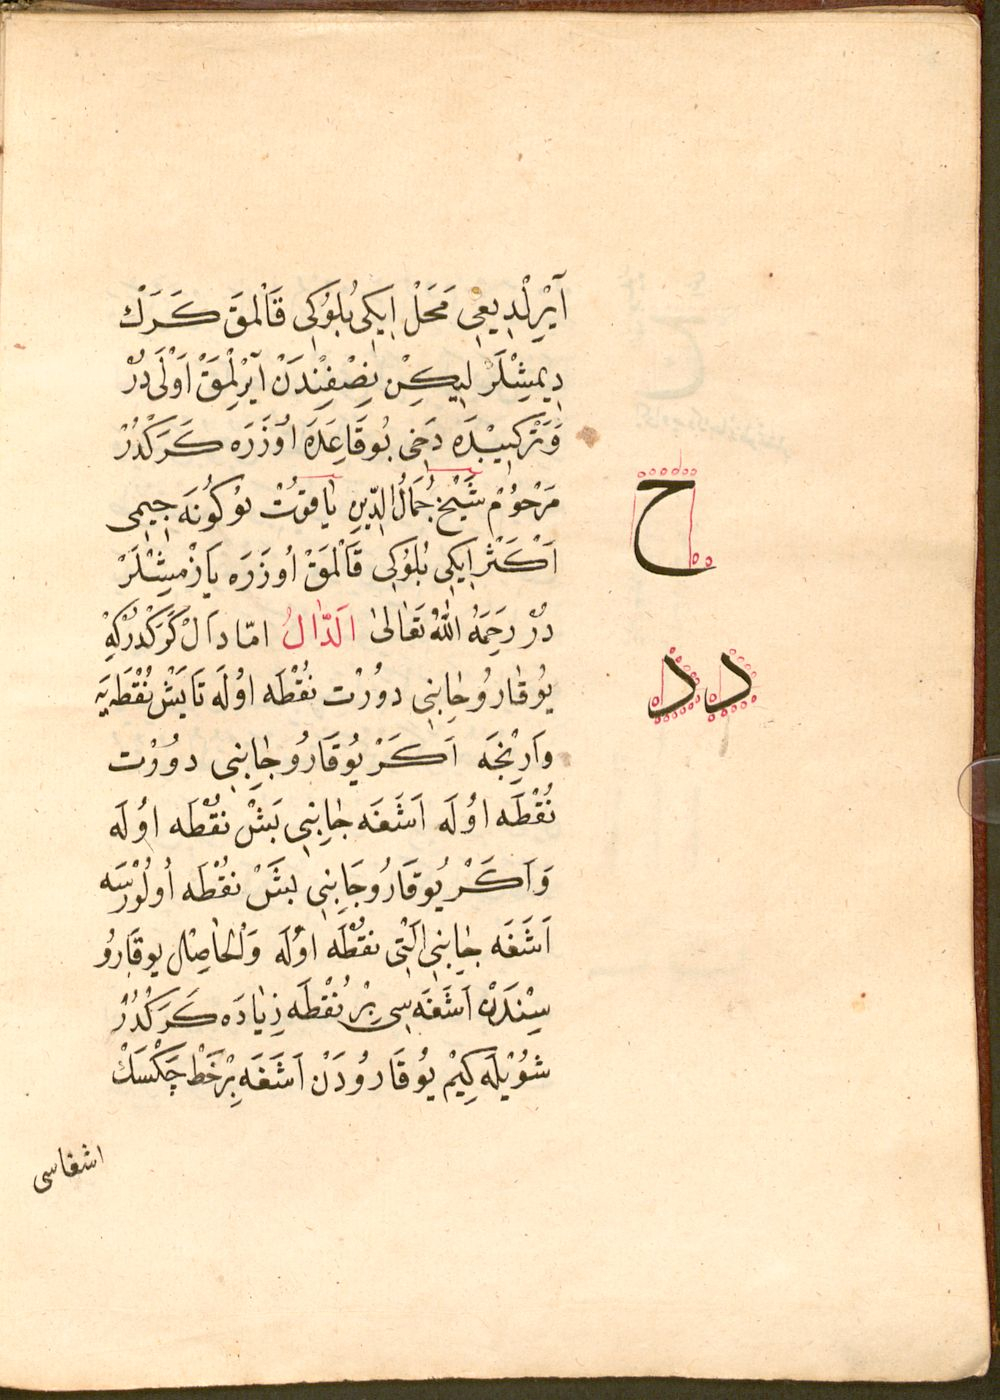 آيْرِلْدِيغِى مَحَلْ اِيكِى بُلُوكِى قَالْمَقَ كَرَكْ
دِيمِشْلَرْ لِيكِنْ نِصْفِنْدَنْ آيْرِلْمَقْ اَوْلَى دُرْ
وَتَرْكِيبْدَه دَخِى بُوقَاعِدَه اُوزَرَه كَرَكْدُرْ
مَرْحُومْ شَيْخْ جُمَالُ الدِّينِ يَاقوُتْ بُوكُونَه جِيمِى
اَكْثَرْ اِيكِى بُلُوكِى قَالْمَقْ اُوزَرَه يَازْمِشْلَرْ
دُرْ رَحِمَهُ اللهُ تَعَالىٰ الدَّالُ امّا دَالْ كَرَكْدُرْكِهْ
يُوقَارُو جَانِبِى دوُرْت نُقْطَه اوُلَه تَا بَشْ نُقْطَه يَه
وَارِنْجَه اَكَرْ يُوقَارُو جَانِبِى دوُرْت
نُقْطَه اوُلَه اَشَغَه جَانِبِى بَشْ نُقْطَه اوُلَه
وَاَكَرْ يُوقَارُو جَانِبِى بَشْ نُقْطَه اُولُورْسَه
اَشَغَه جَانِبِى اَلْتِى نُقْطَه اوُلَه وَلْحَاصِل يوقَارُو
سِنْدَنْ اَشَغَه سِى بِرْ نُقْطَه زِيَادَه كَرَكْدُرْ
شُويْلَه كِيمْ يُوقَارُودَنْ اَشَغَه بِرْخَطْ چَكْسَكْ
اشغاسى
ح
د د